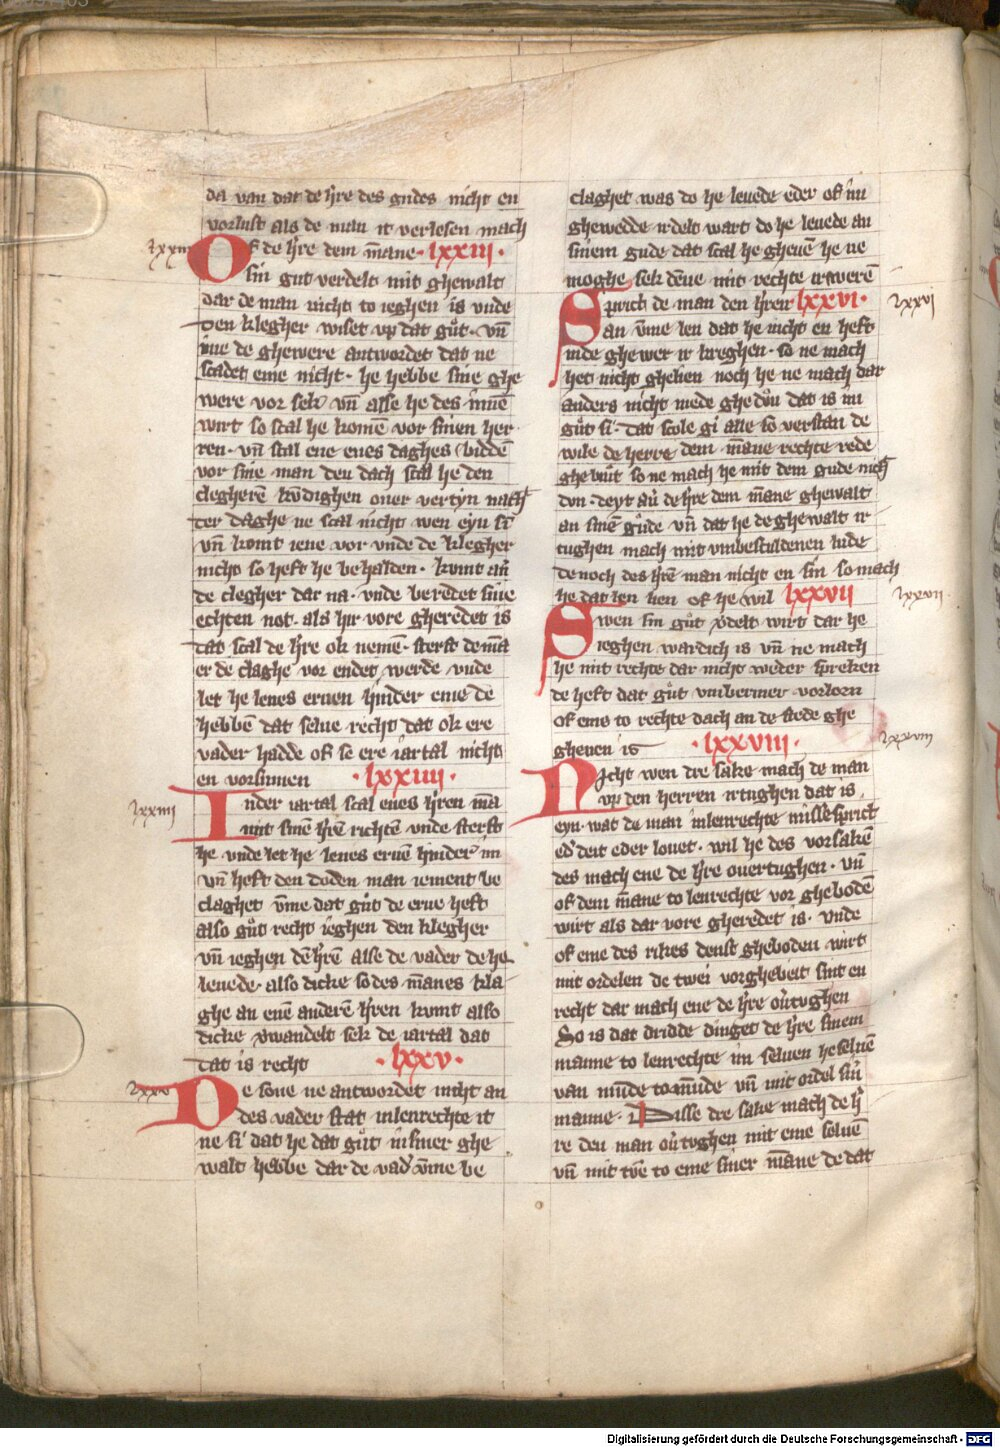 da van dat de h're des gudes nicht en
vorlust als de man it verlesen mach
lxxiii
Of de h're dem māne · lxxiii ·
sin gut verdelt mit ghewalt
dar de man nicht to ieghen is vnde
den klegher wiset vp dat gůt · vn̄
ime de ghewere antwordet dat ne
scadet eme nicht · he hebbe sine ghe
were vor sek vn̄ alse he des inne
wirt so scal he komē vor sinen her
ren · vn̄ scal ene enes daghes biddē
vor sine man den dach scal he den
clegherē kūdighen ouer vertyn nach
ter daghe ne scal nicht wen eyn si
vn̄ komt iene vor vnde de klegher
nicht so heft he behalden · kumt au̓
de clegher dar na · vnde beredet sine
echten not · als hir vore gheredet is
dat scal de h're ok nemē · sterft de mā
er de claghe vor endet werde vnde
let he lenes eruen hinder eme de
hebbē dat selue recht dat ok ere
vader hadde of se ere iartal nicht
en vorsumen · lxxiiii ·
lxxiiii
Inder iartal scal enes h'ren mā
mit sinē h'rē richtē vnde sterft
he vnde let he lenes eruē hinder im
vn̄ heft den doden man iement be
claghet v̄me dat gůt de erue heft
also gůt recht ieghen den klegher
vn̄ ieghen dē h'rē alse de vader de he
leuede · also dicke so des mānes kla
ghe an enē anderē h'ren kumt also
dicke v'wandelt sek de iartal dat
dat is recht · lxxv ·
lxxv
De sone ne antwordet nicht an
des vader stat inlenrechte it
ne si dat he dat gůt in siner ghe
walt hebbe dar de vad' v̄me be
claghet was do he leuede eder of im
ghewedde irdelt wart do he leuede an
sinem gude dat scal he gheuē he ne
moghe sek dēne mit rechte irwerē
Sprict de man den h'ren · lxxvi ·
lxxvi
an v̄me len dat he nicht en heft
inde ghewer ir kreghen · so ne mach
het nicht ghelien noch he ne mach dar
anders nicht mede ghedůn dat is im
gůt si · dat scole gi alle so verstan de
wile de herre dem māne rechte rede
ghebuit so ne mach he mit dem gude nich
don · deyt au̓ de h're dem māne ghewalt
an sinē gůde vn̄ dat he de ghewalt ir
tughen mach mit vmbesculdenen lude
dennoch des h'rē man nicht en sin so mach
he dat len lien of he wil lxxvii
lxxvii
Swen sin gůt v'delt wirt dar he
ieghen wardich is vn̄ ne mach
he mit rechte dar nicht weder spreken
de heft dat gůt vmbermer vorlorn
of eme to rechte dach an de stede ghe
gheuen is · lxxviii ·
lxxviii
Nicht wen dre sake mach de man
vp den herren irtughen dat is
eyn · wat de man inlenrechte missesprict
ed' deit eder louet · wil he des vorsakē
des mach ene de h're ouertughen · vn̄
of dem māne to lenrechte vor ghebodē
wirt als dar vore gheredet is · vnde
of eme des rikes denst gheboden wirt
mit ordelen de twei vorghebeit sint en
recht dar mach ene de h're ou̓tvghen
So is dat dridde dinget de h're sinem
manne to lenrechte im seluen he seluē
van mūde to mūde vn̄ mit ordel sin̄
manne · Disse dre sake mach de h'
re den man ou̓tvghen mit eme seluē
vn̄ mit twē to eme siner māne de dat
Digitalisierung gefördert durch die Deutsche Forschungsgemeinschaft - DFG